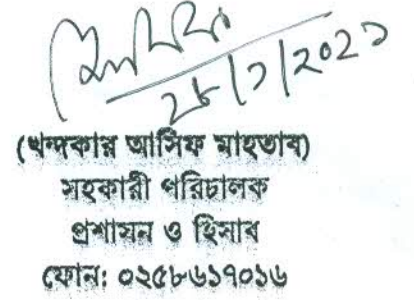 ২৮/১/২০২১
(খন্দকার আসিফ মাহতাব)
সহকারী পরিচালক
প্রশাসন ও হিসাব
ফোন: ০২৫৮৬১৭০১৬